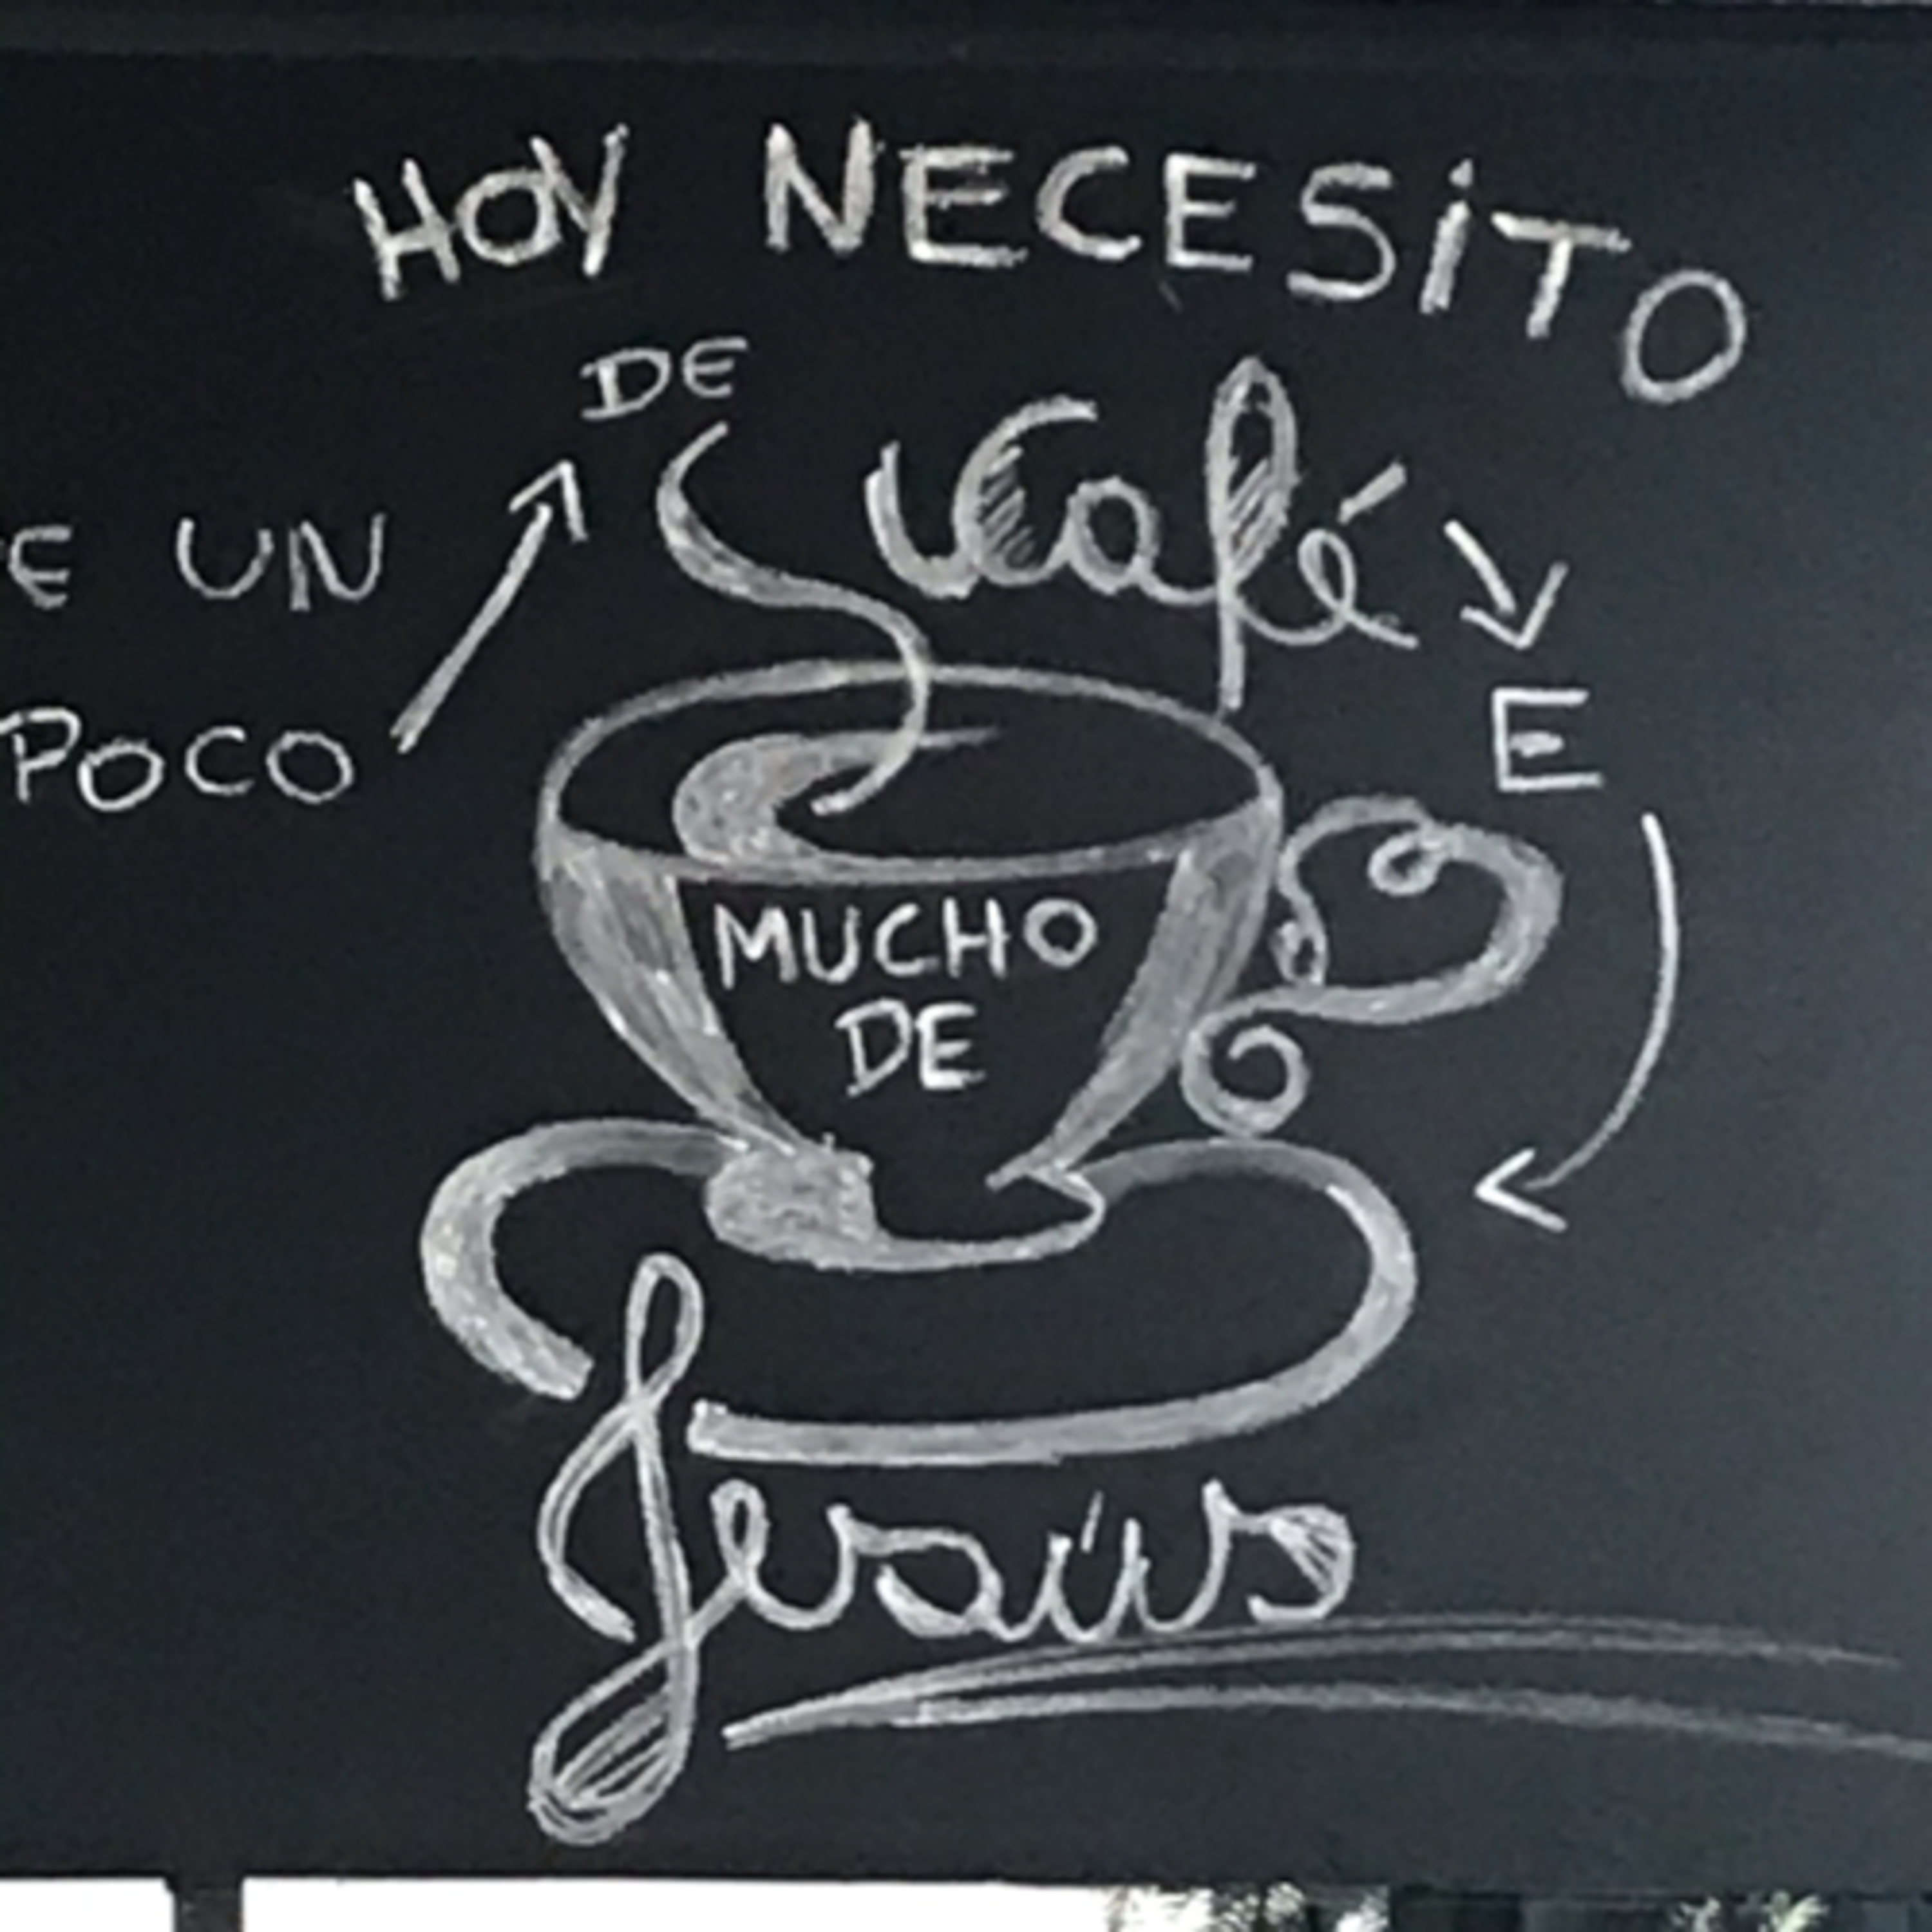 HOY NECESITO
E UN
POCO
DE
Café
E
MUCHO
DE
Jesús